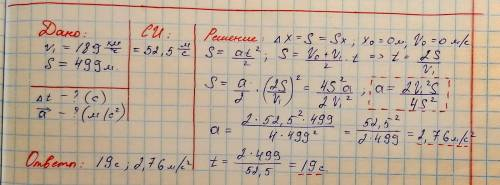 Дано:
v₁ = 189 км/ч
S = 499м.
Δt - ? (с)
a⃗ - ? (м/с²)
СИ:
= 52,5 м/с
Решение: Δx = S = Sx, x₀ = 0м, V₀ = 0 м/с
S = at²/2; S = (V₀ + V₁)/2 · t => t = 2S/V₁
S = a/2 · (2S/V₁)² = 4S²a/2V₁²; a = 2V₁²S/4S²
a = 2 · 52,5² · 499/4 · 499² = 52,5²/2 · 499 = 2,76 м/с²
t = 2 · 499/52,5 = 19с
Ответ: 19с; 2,76 м/с²